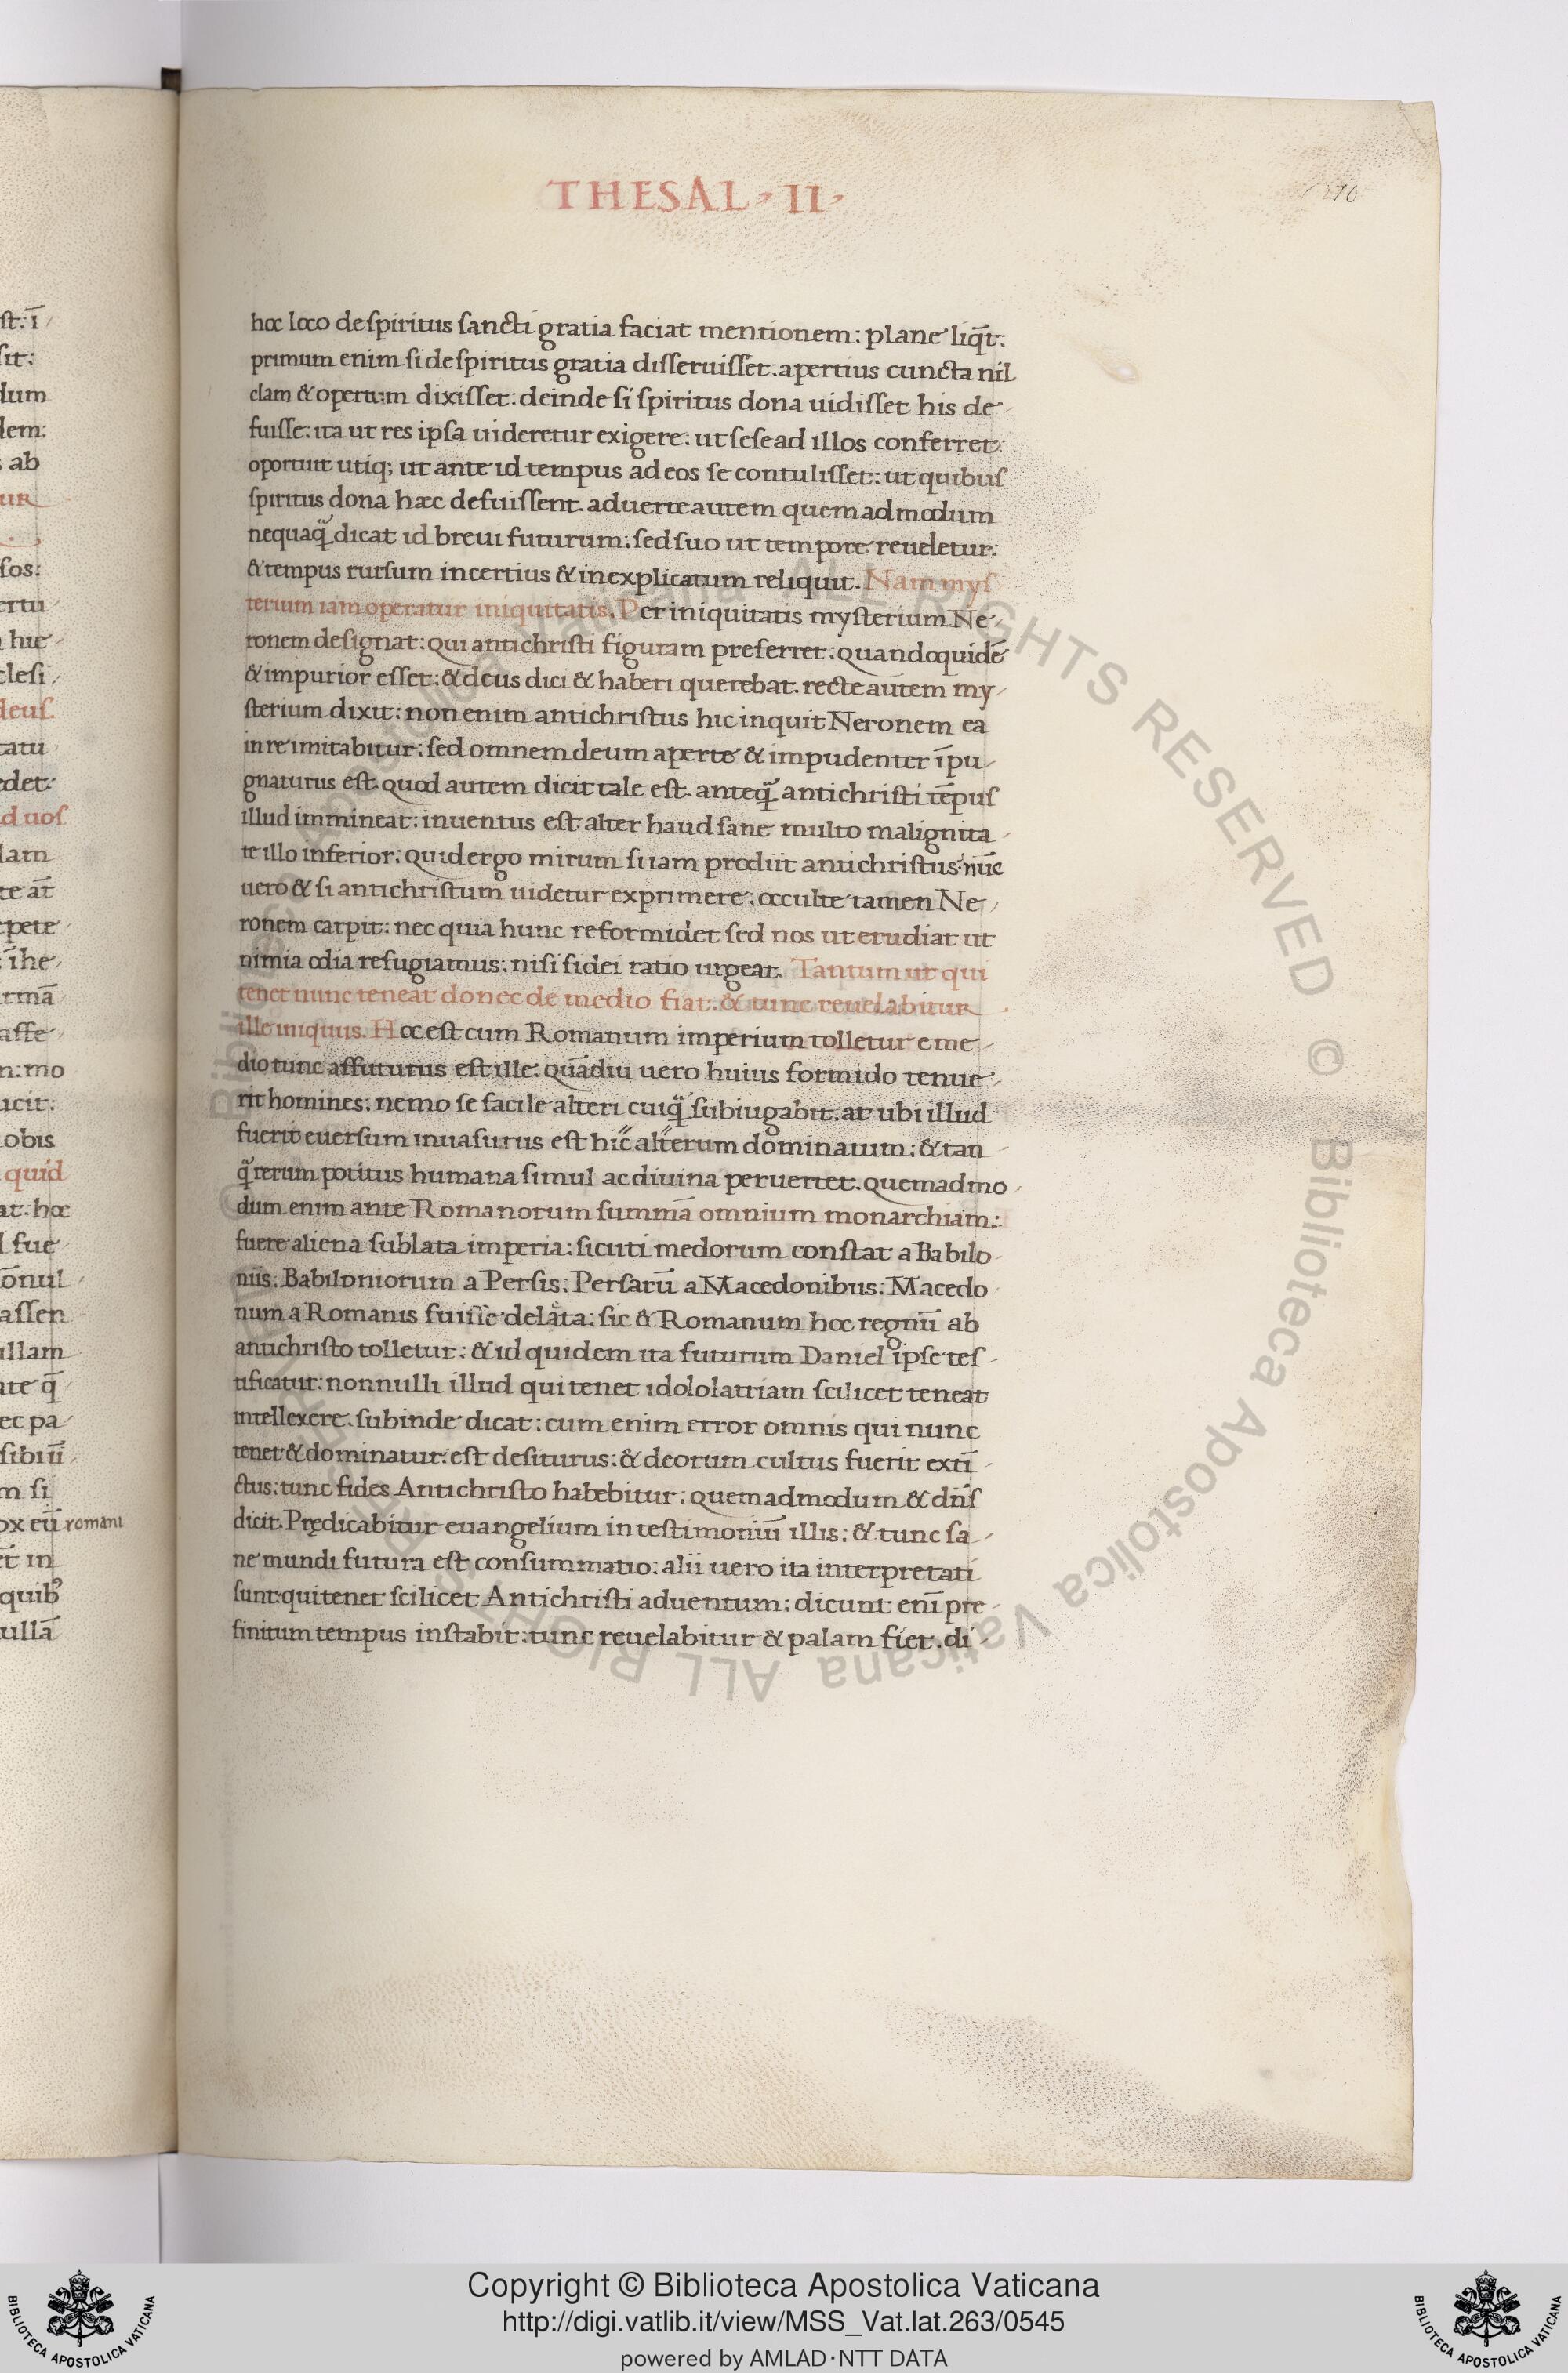 THESAL · II ·
270
hoc loco de spiritus sancti gratia faciat mentionem: plane liq̄t.
primum enim si de spiritus gratia disseruisset. apertius cuncta nil
clam & opertum dixisset: deinde si spiritus dona uidisset his de
fuisse: ita ut res ipsa uideretur exigere. ut sese ad illos conferret:
oportuit utiq; ut ante id tempus ad eos se contulisset: ut quibus
spiritus dona hæc defuissent. aduerte autem quemadmodum
nequaq̄ dicat id breui futurum: sed suo ut tempore reueletur:
& tempus rursum incertius & inexplicatum reliquit. Nam mys
terium iam operatur iniquitatis. Per iniquitatis mysterium Ne
ronem designat: qui antichristi figuram preferret: quandoquidē
& impurior esset: & deus dici & haberi querebat. recte autem my
sterium dixit: non enim antichristus hic inquit Neronem ea
in re imitabitur: sed omnem deum aperte & impudenter īpu
gnaturus est. quod autem dicit tale est. anteq̄ antichristi tēpus
illud immineat: inuentus est alter haud sane multo malignita
te illo inferior: quid ergo mirum si iam prodiit antichristus: nūc
uero & si antichristum uidetur exprimere: occulte tamen Ne
ronem carpit: nec quia hunc reformidet sed nos ut erudiat ut
nimia odia refugiamus: nisi fidei ratio urgeat. Tantum ut qui
tenet nunc teneat donec de medio fiat. & tunc reuelabitur
ille iniquus. Hoc est cum Romanum imperium tolletur e me
dio tunc affuturus est ille: quādiu uero huius formido tenue
rit homines: nemo se facile alteri cuiq̄ subiugabit. at ubi illud
fuerit euersum inuasurus est hic alterum dominatum: & tan
q̄ rerum potitus humana simul ac diuina peruertet. quemadmo
dum enim ante Romanorum summā omnium monarchiam:
fuere aliena sublata imperia: sicuti medorum constat a Babilo
niis: Babiloniorum a Persis: Persarū a Macedonibus: Macedo
num a Romanis fuisse delata: sic & Romanum hoc regnū ab
antichristo tolletur: & id quidem ita futurum Daniel ipse tes
tificatur: nonnulli illud qui tenet idololatriam scilicet teneat
intellexere. subinde dicat: cum enim error omnis qui nunc
tenet & dominatur: est desiturus: & deorum cultus fuerit extī
ctus: tunc fides Antichristo habebitur: quemadmodum & dn̄s
dicit. Prędicabitur euangelium in testimoniū illis: & tunc sa
ne mundi futura est consummatio: alii uero ita interpretati
sunt: qui tenet scilicet Antichristi aduentum: dicunt enī pre
finitum tempus instabit: tunc reuelabitur & palam fiet. di
romani
Copyright © Biblioteca Apostolica Vaticana
http://digi.vatlib.it/view/MSS_Vat.lat.263/0545
powered by AMLAD·NTT DATA